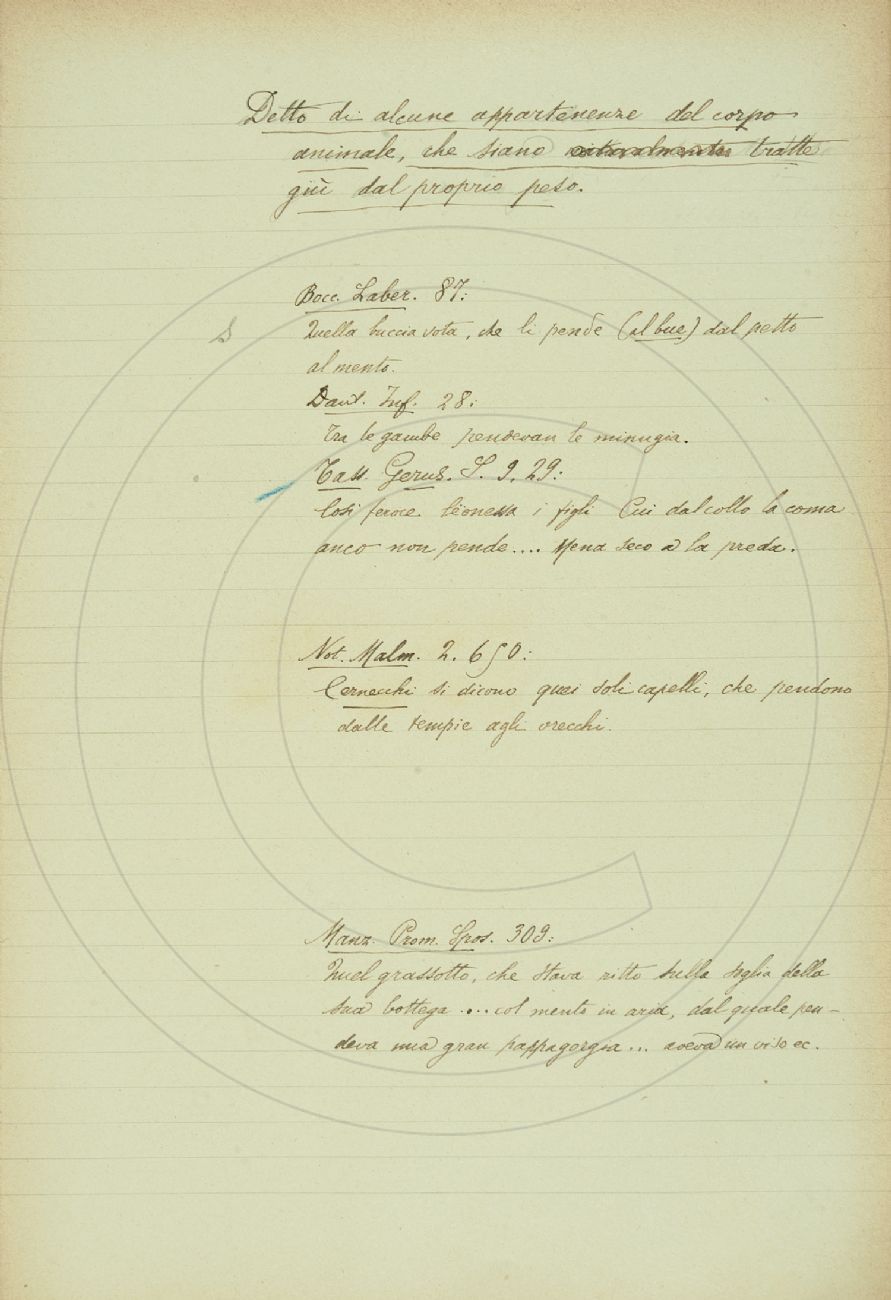 Detto di alcune appartenenze del corpo
animale, che siano naturalmente tratte
giù dal proprio peso.
Bocc. Laber. 87:
Quella buccia vota, che li pende (al bue) dal petto
al mento.
Dant. Inf. 28:
Tra le gambe pendevan le minugia.
Tass. Gerus. S. 9. 29:
Così feroce leonessa i figli Cui dal collo la coma
anco non pende.... Mena seco a la preda.
Not. Malm. 2. 650:
Cernecchi si dicono quei soli capelli, che pendono
dalle tempie agli orecchi.
Manz. Prom. Spos. 309:
Quel grassotto, che stava ritto sulla soglia della
sua bottega ... col mento in aria, dal quale pen-
deva una gran pappagorgia ... aveva un viso ec.